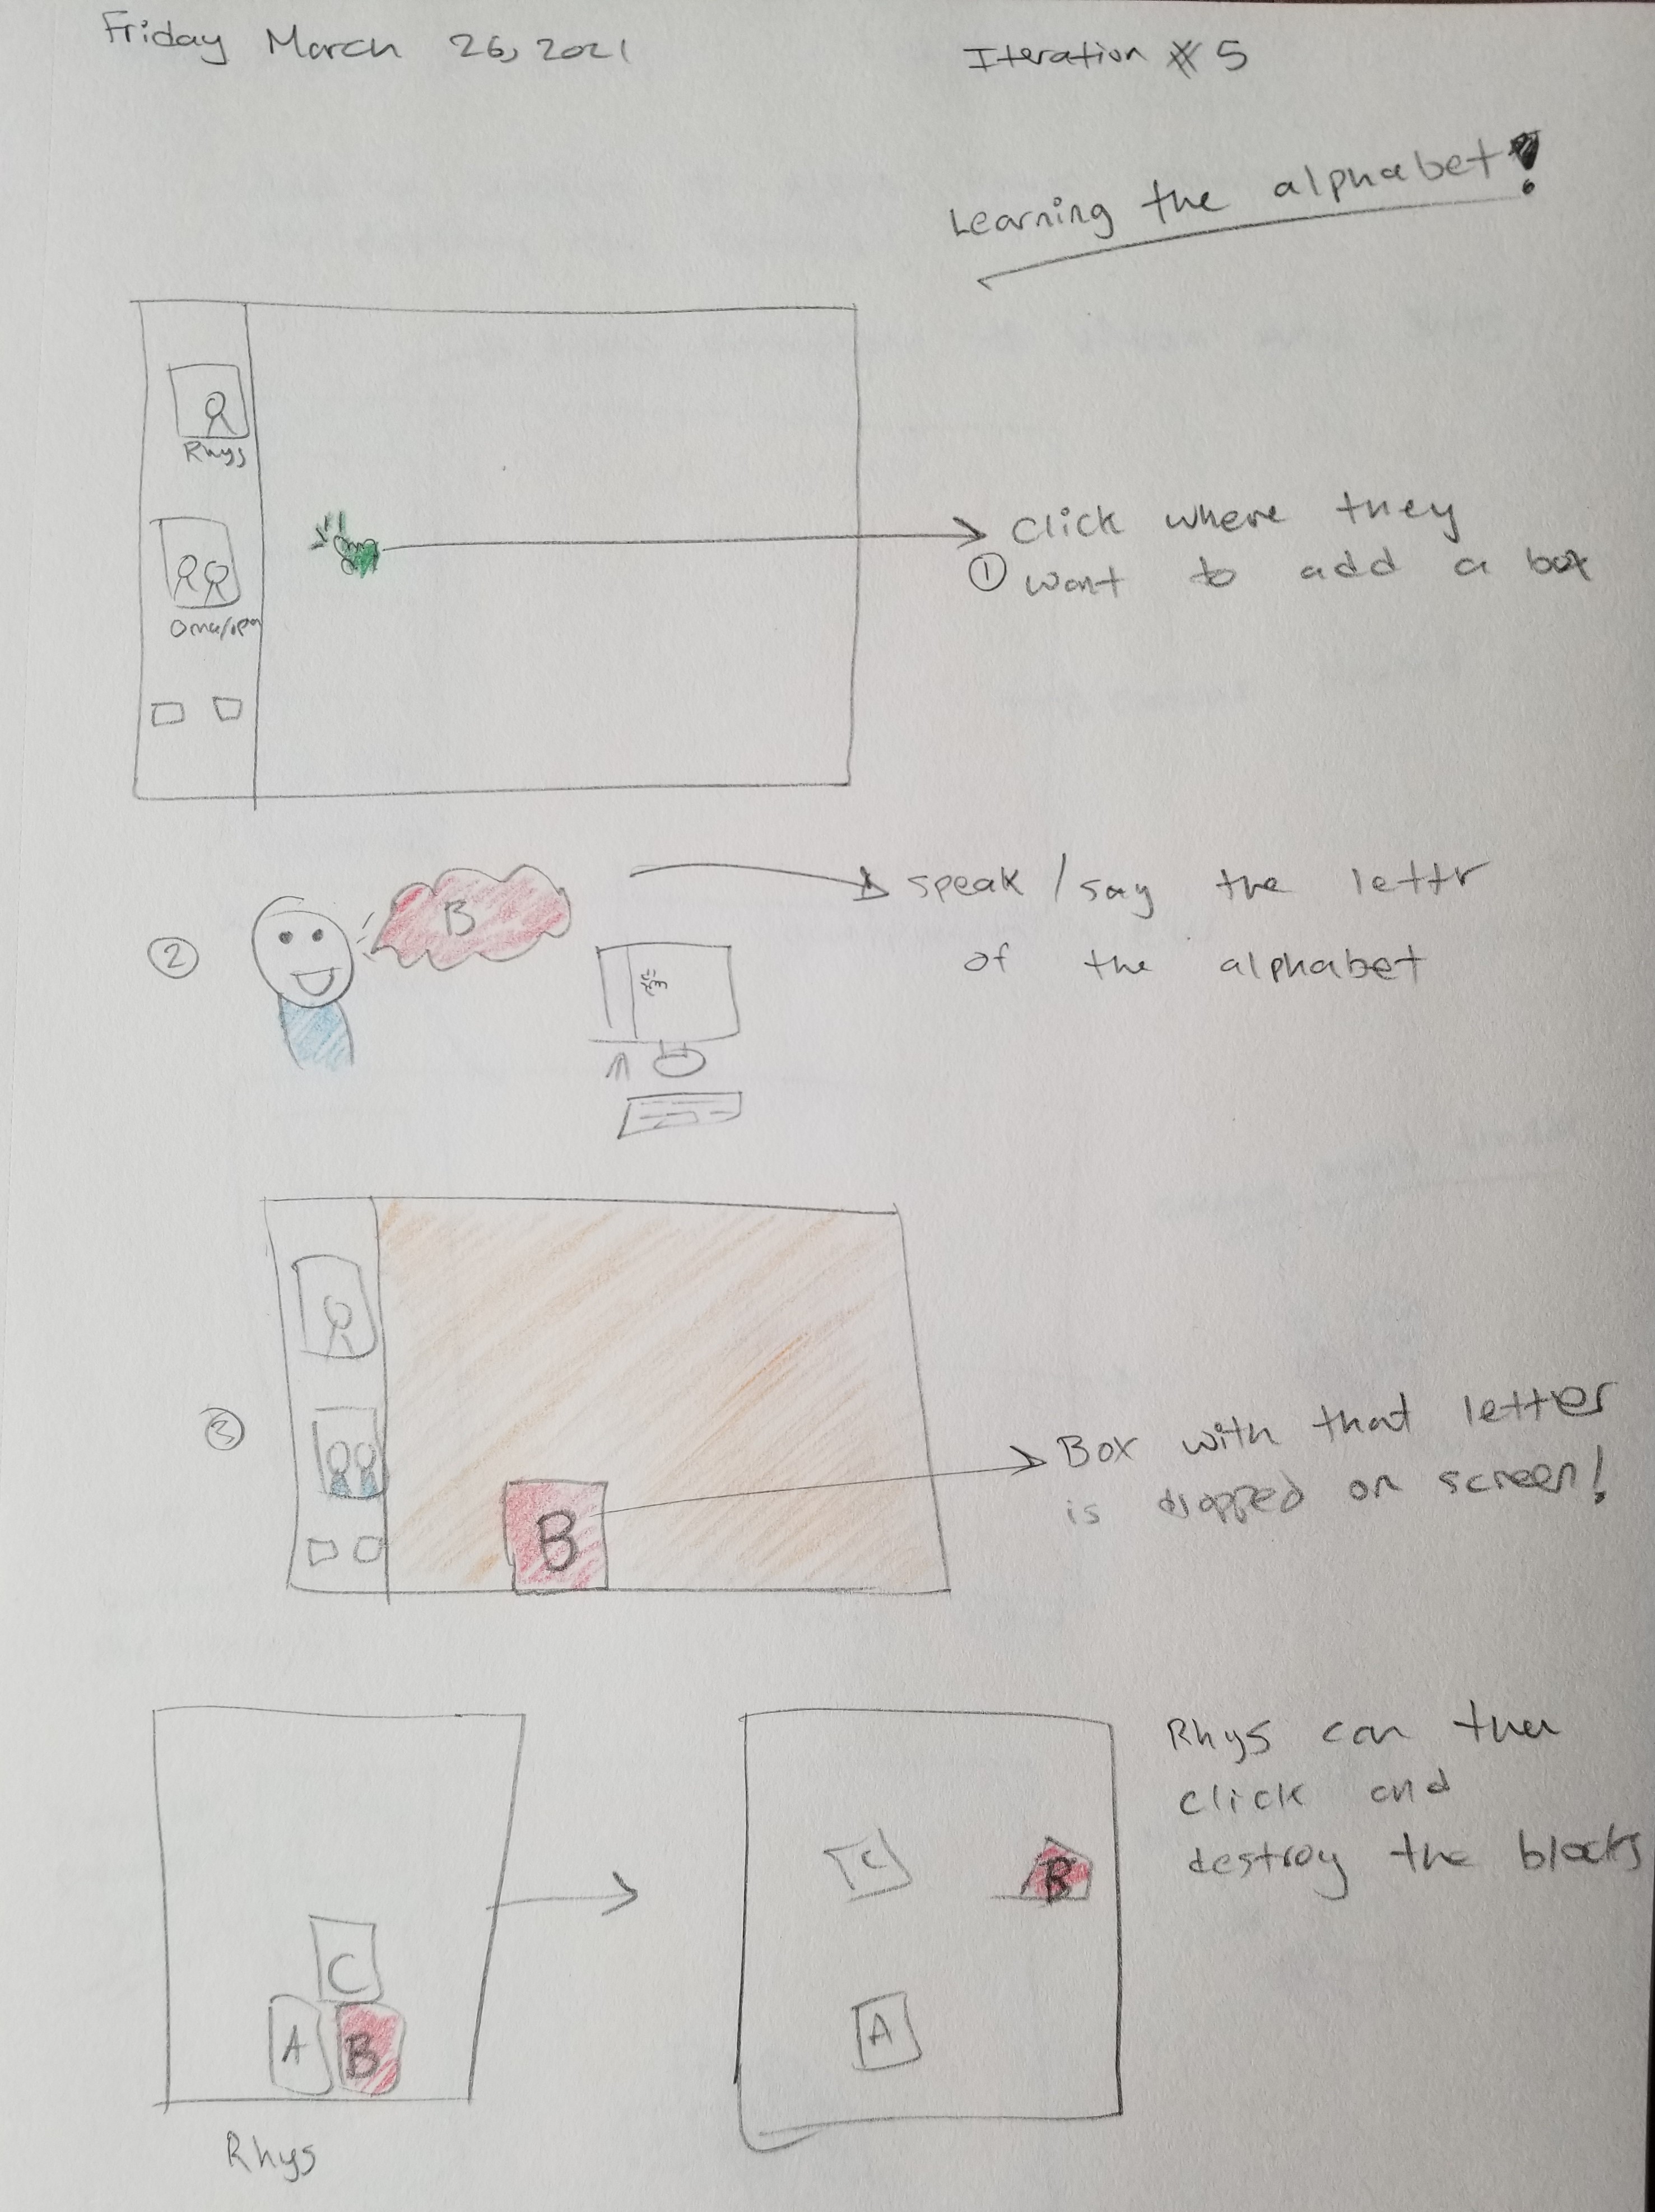 Friday March 26, 2021
Iteration #5
Learning the alphabet!
Rhys
Oma/opa
Click where they
① want to add a box
②
B
speak / say the lettr
of the alphabet
③
B
Box with that letter
is dropped on screen!
C
A B
Rhys
C
B
A
Rhys can then
click and
destroy the blocks